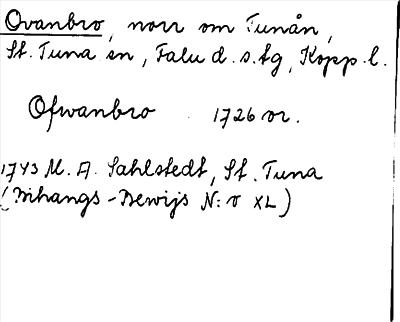 Ovanbro, norr om Tunån,
St. Tuna sn, Falu d.s.tg, Kopp.l.
Ofwanbro 1726 or.
1743 M. A. Sahlstedt, St. Tuna
(Bihangs-Bewijs N:o XL)